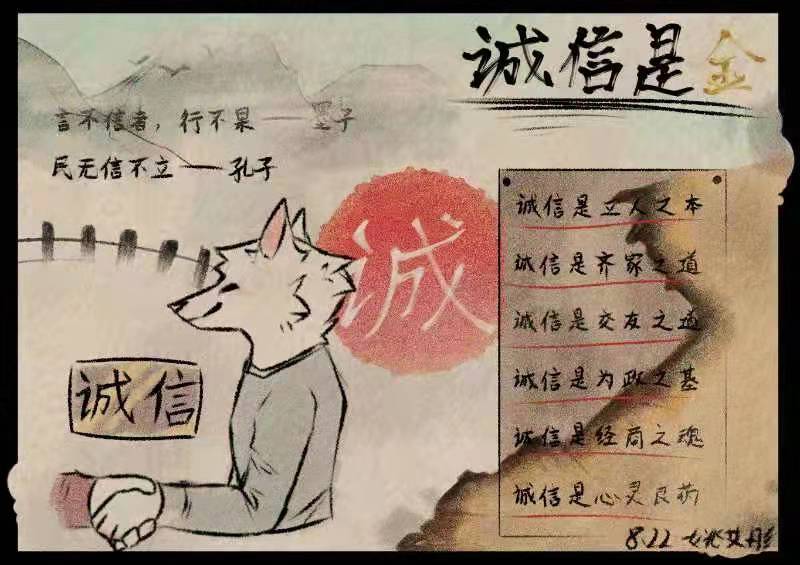 诚信是金
言不信者，行不果——墨子
民无信不立——孔子
诚
诚信
诚信是立人之本
诚信是齐家之道
诚信是交友之道
诚信是为政之基
诚信是经局之魂
诚信是心灵良药
8.22 姚艾彤